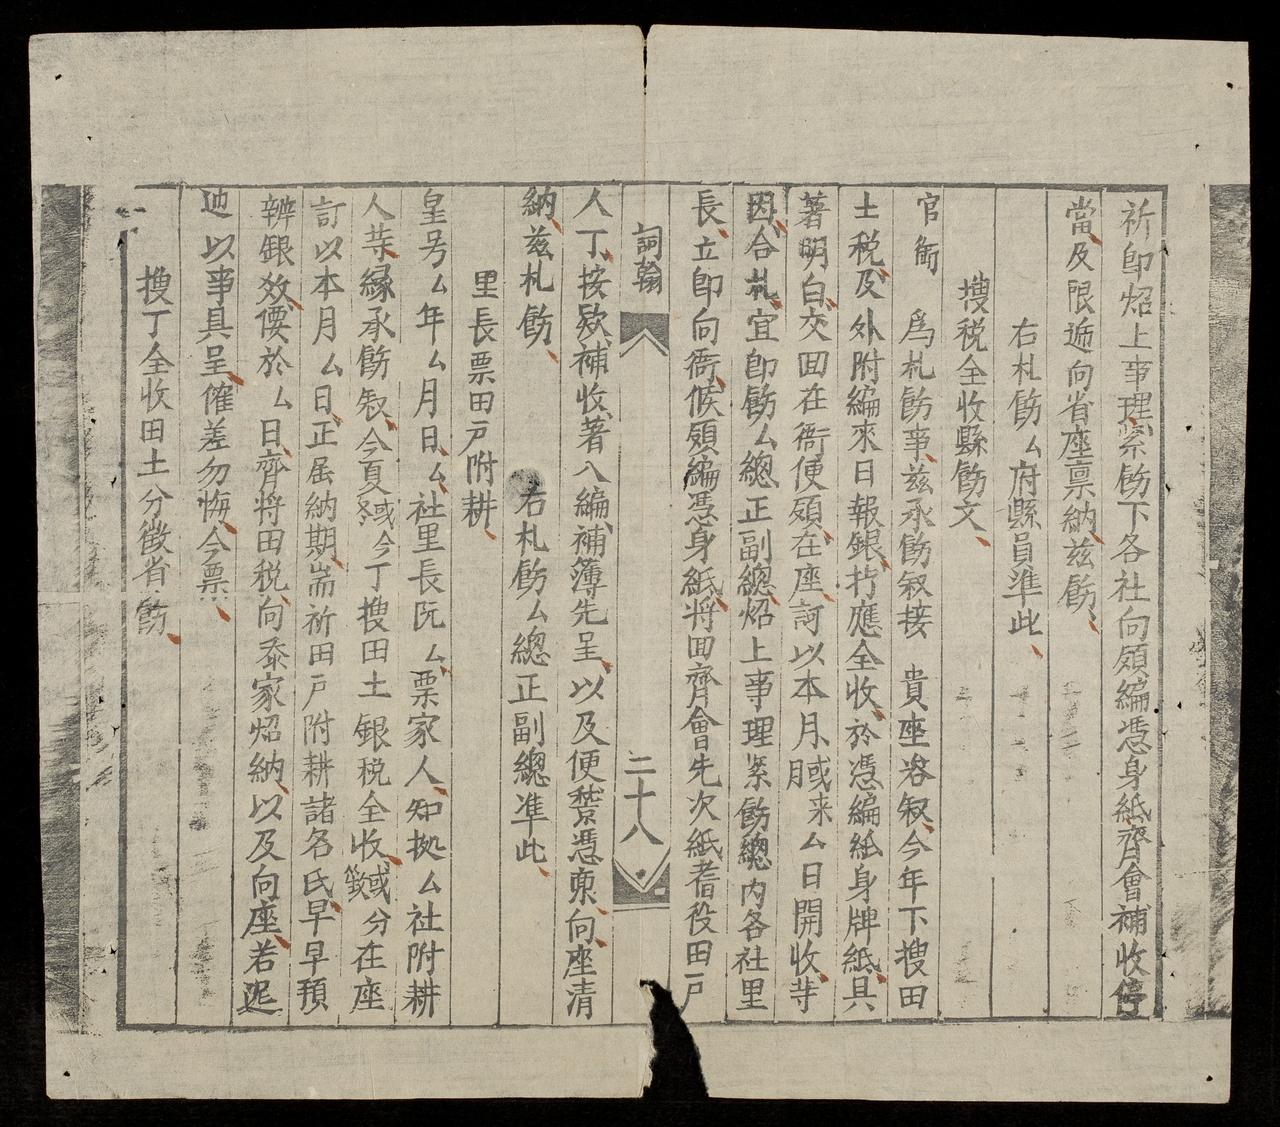 祈即炤上事理緊飭下各社向頋編憑身紙齊會補收停
當及限遞向省座禀納茲飭
右札飭厶府縣員準此
𢲸税全收縣飭文
官銜　為札飭事茲承飭叙接　貴座咨叙今年下搜田
土税及外附編來日報銀拧應全收於憑編紙身牌紙具
著明白交囬在衙便頋在座訶以本月或来月厶日開收䒭
因合札宜即飭厶總正副總炤上事理緊飭總内各社里
長立即向衙候頋編憑身紙將囬齊會先次紙耆役田戸
詞翰　二十八
人丁按欵補收著入編補簿先呈以及便𥡴憑稟向座清
納茲札飭　右札飭厶總正副總準此
里長票田戸附耕
皇号厶年厶月日厶社里長阮厶票家人知拠厶社附耕
人䒭縁承飭叙今夏或冬今丁搜田土銀税全收或欵分在座
訂以本月厶日正屆納期耑祈田戸附耕諸名氏早早預
辨銀效便於厶日齊將田税向忝家炤納以及向座若遲
迆以事具呈催差勿悔今票
搜丁全收田土分徵省飭